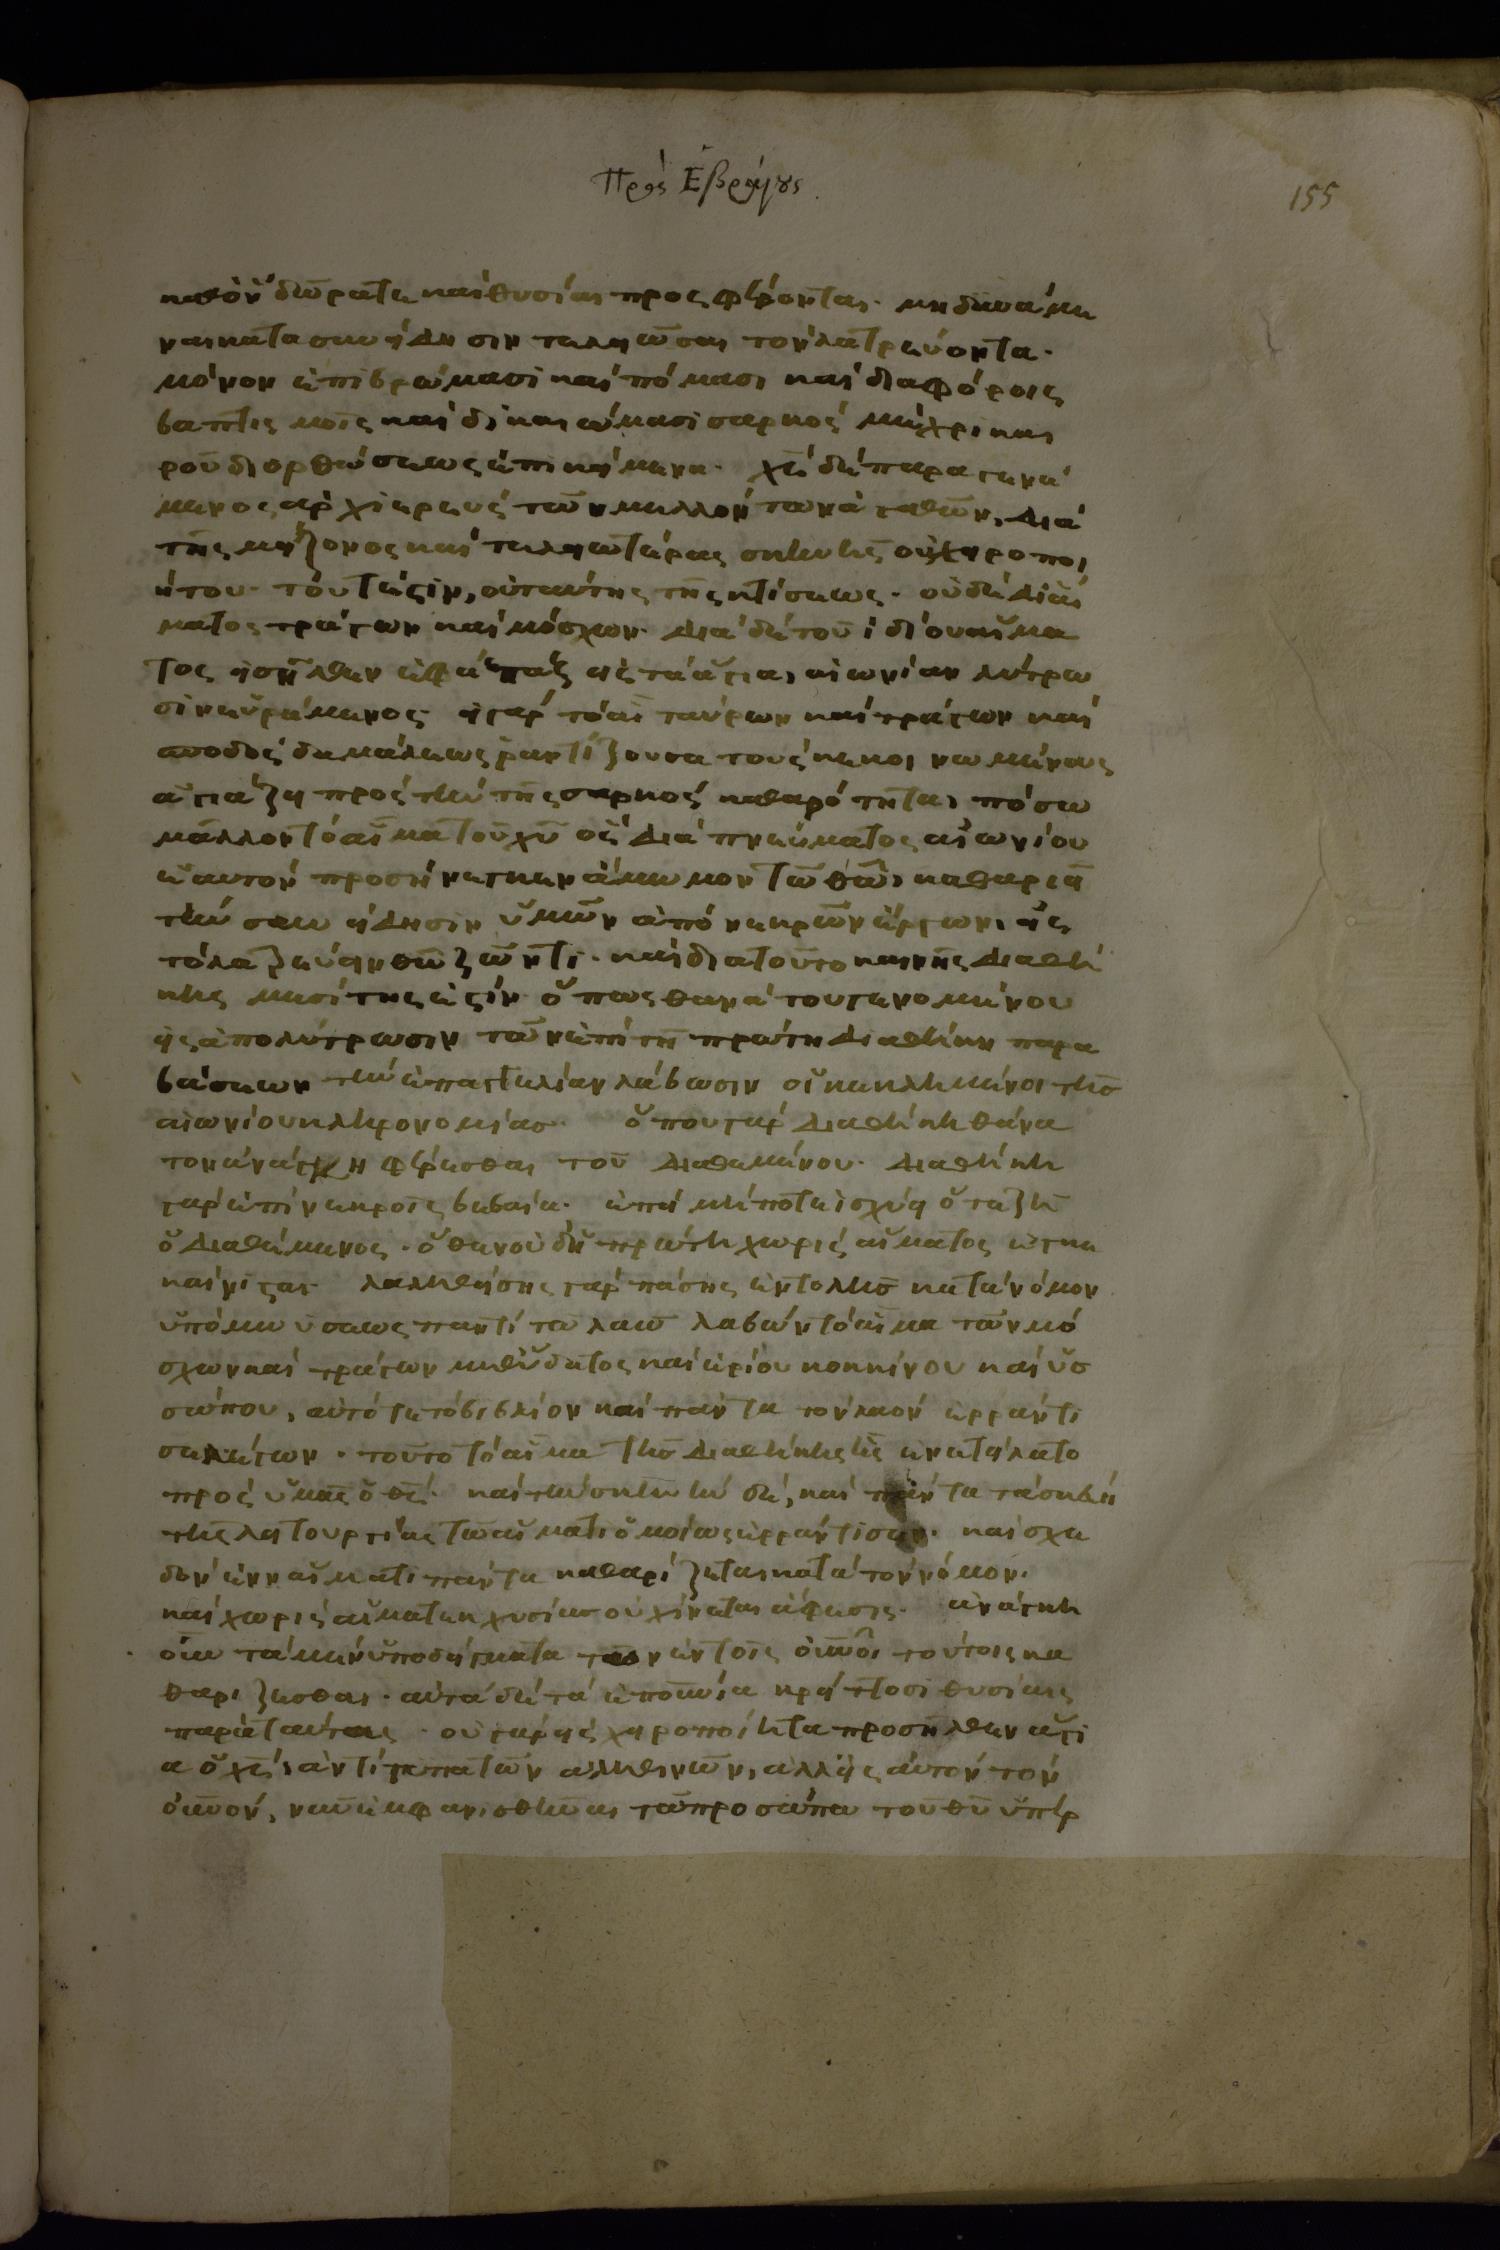 Πρὸς Ἑβραίους
155
καθὸν δῶρατε καὶ θυσίαι προςφέρονται. μὴ δυνάμε
ναι κατασυνήδησιν τελειῶσαι τὸν λατρεύοντα.
μόνον ἐπὶ βρώμασι καὶ πόμασι καὶ διαφόροις
βαπτισμοῖς καὶ δικαιώμασι σαρκὸς μέχρι και
ροῦ διορθώσεως ἐπικείμενα. χς̅ δὲ παραγενό
μενος ἀρχιερεὺς τῶν μελλόντων ἀγαθῶν, διὰ
τῆς μείζονος καὶ τελειωτέρας σκηνῆς οὐ χειροποι
ήτου. τουτέστιν, οὐ ταύτης τῆς κτίσεως. οὐδὲ δι' αἵ
ματος τράγων καὶ μόσχων. διὰ δὲ τοῦ ἰδίου αἵμα
τος εἰσῆλθεν ἐφάπαξ εἰς τὰ ἅγια, αἰωνίαν λύτρω
σιν εὑράμενος. εἰ γὰρ τὸ αἷ ταύρων καὶ τράγων καὶ
σποδὸς δαμάλεως ῥαντίζουσα τοὺς κεκοινωμένους
ἁγιάζει πρὸς τὴν τῆς σαρκὸς καθαρότητα, πόσω
μᾶλλον τὸ αἷμα τοῦ χυ̅ ὃς διὰ πνεύματος αἰωνίου
ἑαυτὸν προσήνεγκεν ἄμωμον τῶ θω̅, καθαριεῖ
τὴν συνείδησιν ὑμῶν ἀπὸ νεκρῶν ἔργων, εἰς
τὸ λατρεύειν θω̅ ζῶντι. καὶ διατοῦτο καινῆς διαθή
κης μεσίτης ἐστίν. ὅπως θανάτου γενομένου
εἰς ἀπολύτρωσιν τῶν ἐπὶ τῆ πρώτη διαθήκη παρα
βάσεων τὴν ἐπαγγελίαν λάβωσιν οἱ κεκλημένοι τῆς
αἰωνίου κληρονομίας. ὅπου γὰρ διαθήκη θάνα
τον ἀνάγκη φέρεσθαι τοῦ διαθεμένου. διαθήκη
γὰρ ἐπὶ νεκροῖς βεβαία. ἐπεὶ μήποτε ἰσχύει ὅτε ζῆ
ὁ διαθέμενος. ὅθεν οὐδ' ἡ πρώτη χωρὶς αἵματος ἐγκε
καίνισται. λαληθείσης γὰρ πάσης ἐντολῆς κατὰ νόμον
ὑπὸ μωϋσέως παντὶ τῶ λαῶ λαβὼν τὸ αἷμα τῶν μό
σχων καὶ τράγων μεθ' ὕδατος καὶ ἐρίου κοκκίνου καὶ ὑσ
σώπου, αὐτό τε τὸ βιβλίον καὶ πάντα τὸν λαὸν ἐρράντι
σε λέγων. τοῦτο τὸ αἷμα τῆς διαθήκης ἧς ἐνετείλατο
πρὸς ὑμᾶς ὁ θς̅. καὶ τὴν σκηνὴν δὲ, καὶ πάντα τὰ σκεύη
τῆς λειτουργίας τῶ αἵματι ὁμοίως ἐρράντισεν. καὶ σχε
δὸν ἐν αἵματι πάντα καθαρίζεται κατὰ τὸν νόμον.
καὶ χωρὶς αἱματεκχυσίας οὐ γίνεται ἄφεσις. ἀνάγκη
οὖν τὰ μὲν ὑποδείγματα τῶν ἐν τοῖς οὐνοῖς τούτοις κα
θαρίζεσθαι. αὐτὰ δὲ τὰ ἐπουνία κρείττοσι θυσίαις
παρὰ ταύτας. οὐ γὰρ εἰς χειροποίητα προσῆλθεν ἅγι
α ὁ χς̅, ἀντίτυπα τῶν ἀληθινῶν, ἀλλ' εἰς αὐτὸν τὸν
οὐνόν, νῦν ἐμφανισθῆναι τῶ προσώπω τοῦ θυ̅ ὑπὲρ